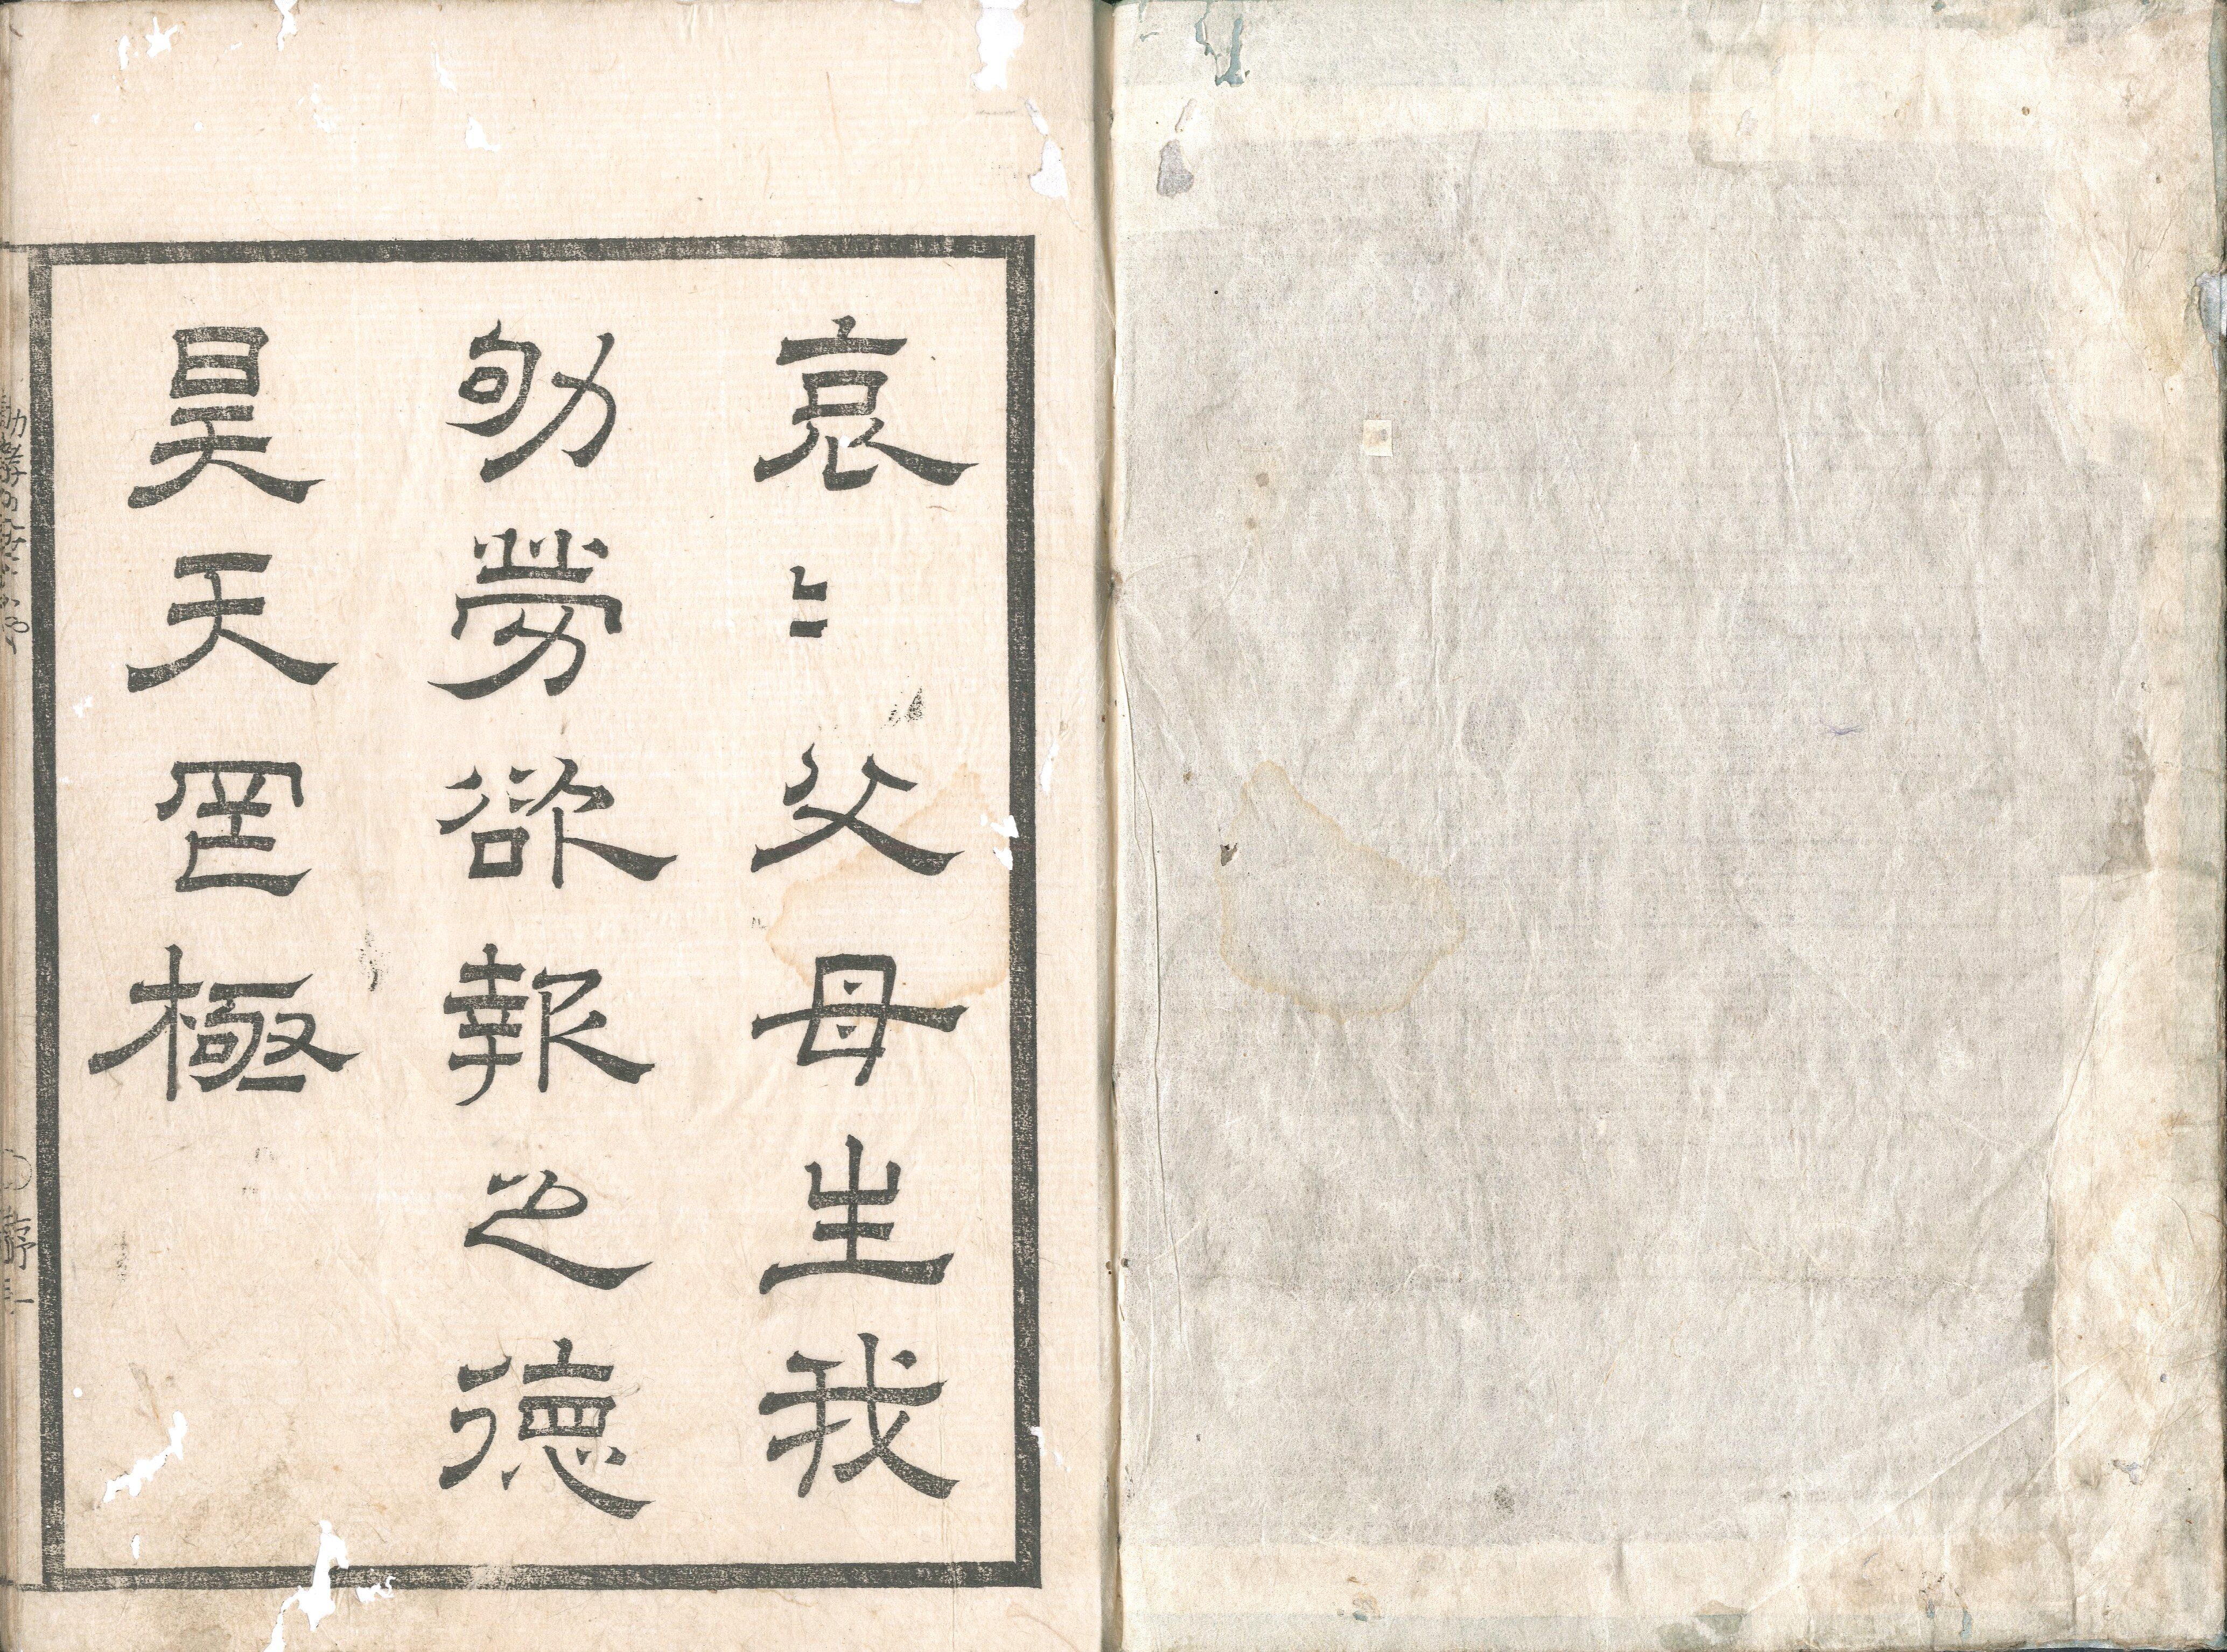 哀〻父母生我
劬勞欲報之德
昊天罔極
序一